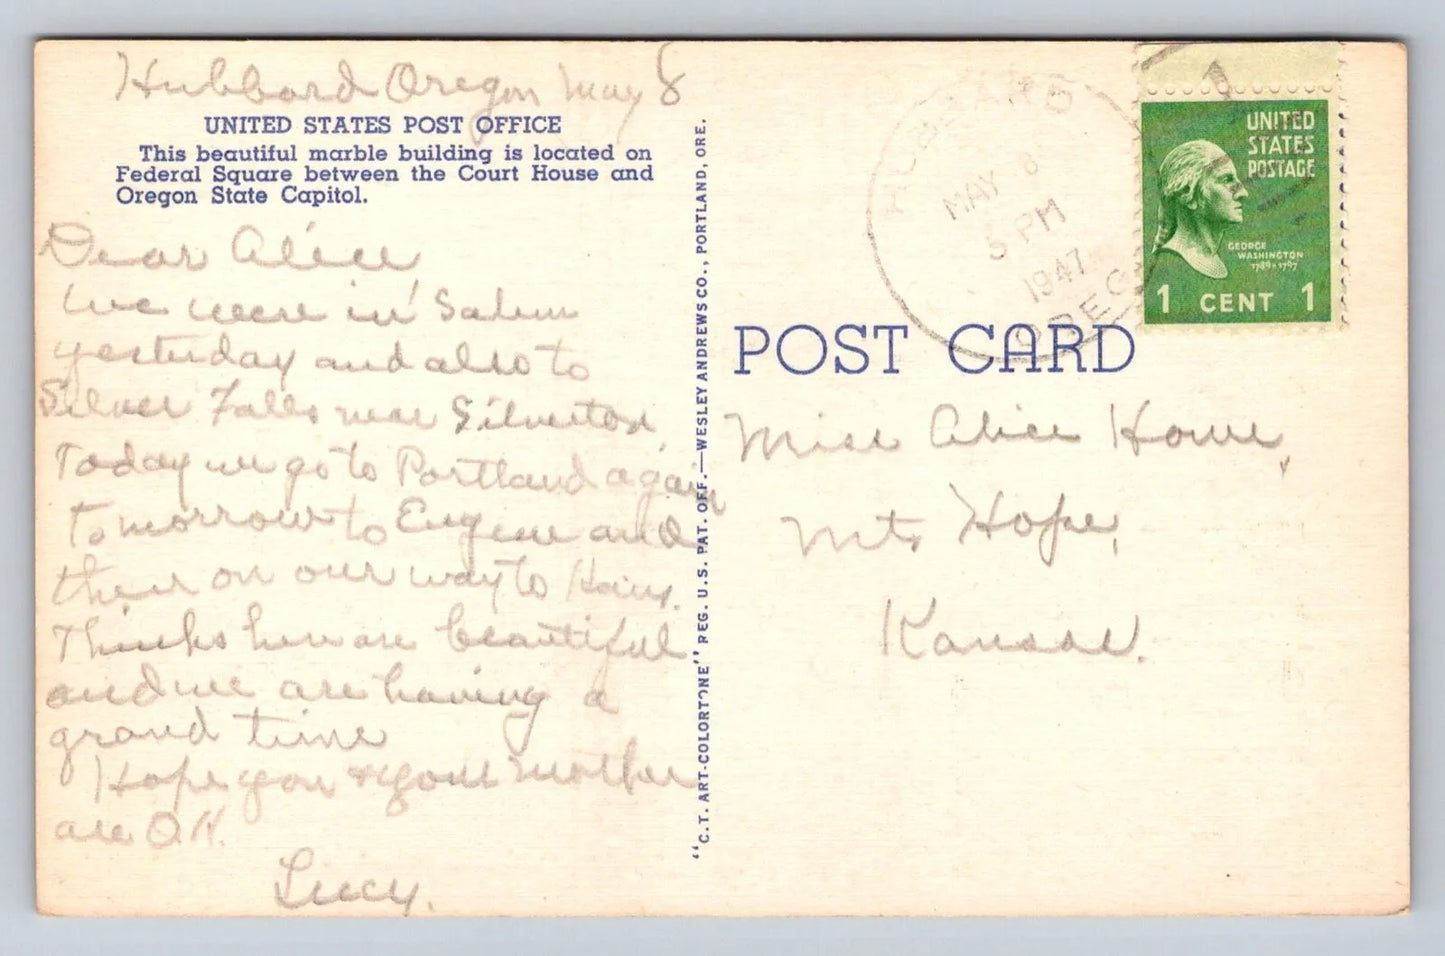 Hubbard Oregon May 8
UNITED STATES POST OFFICE
This beautiful marble building is located on
Federal Square between the Court House and
Oregon State Capitol.
Dear Alice
We were in Salem
yesterday and also to
Silver Falls near Silverton.
Today we go to Portland again
Tomorrow to Eugene and
then on our way to
Things here are beautiful
and we are having a
grand time
Hope you & your mother
are O.K.
Lucy.
"C.T. ART-COLORTONE" REG. U.S. PAT. OFF.—WESLEY ANDREWS CO., PORTLAND, ORE.
HUBBARD
MAY 8
5 PM
1947
OREG.
UNITED
STATES
POSTAGE
GEORGE
WASHINGTON
1789-1797
1 CENT 1
POST CARD
Miss Alice Howe,
Mt. Hope,
Kansas.